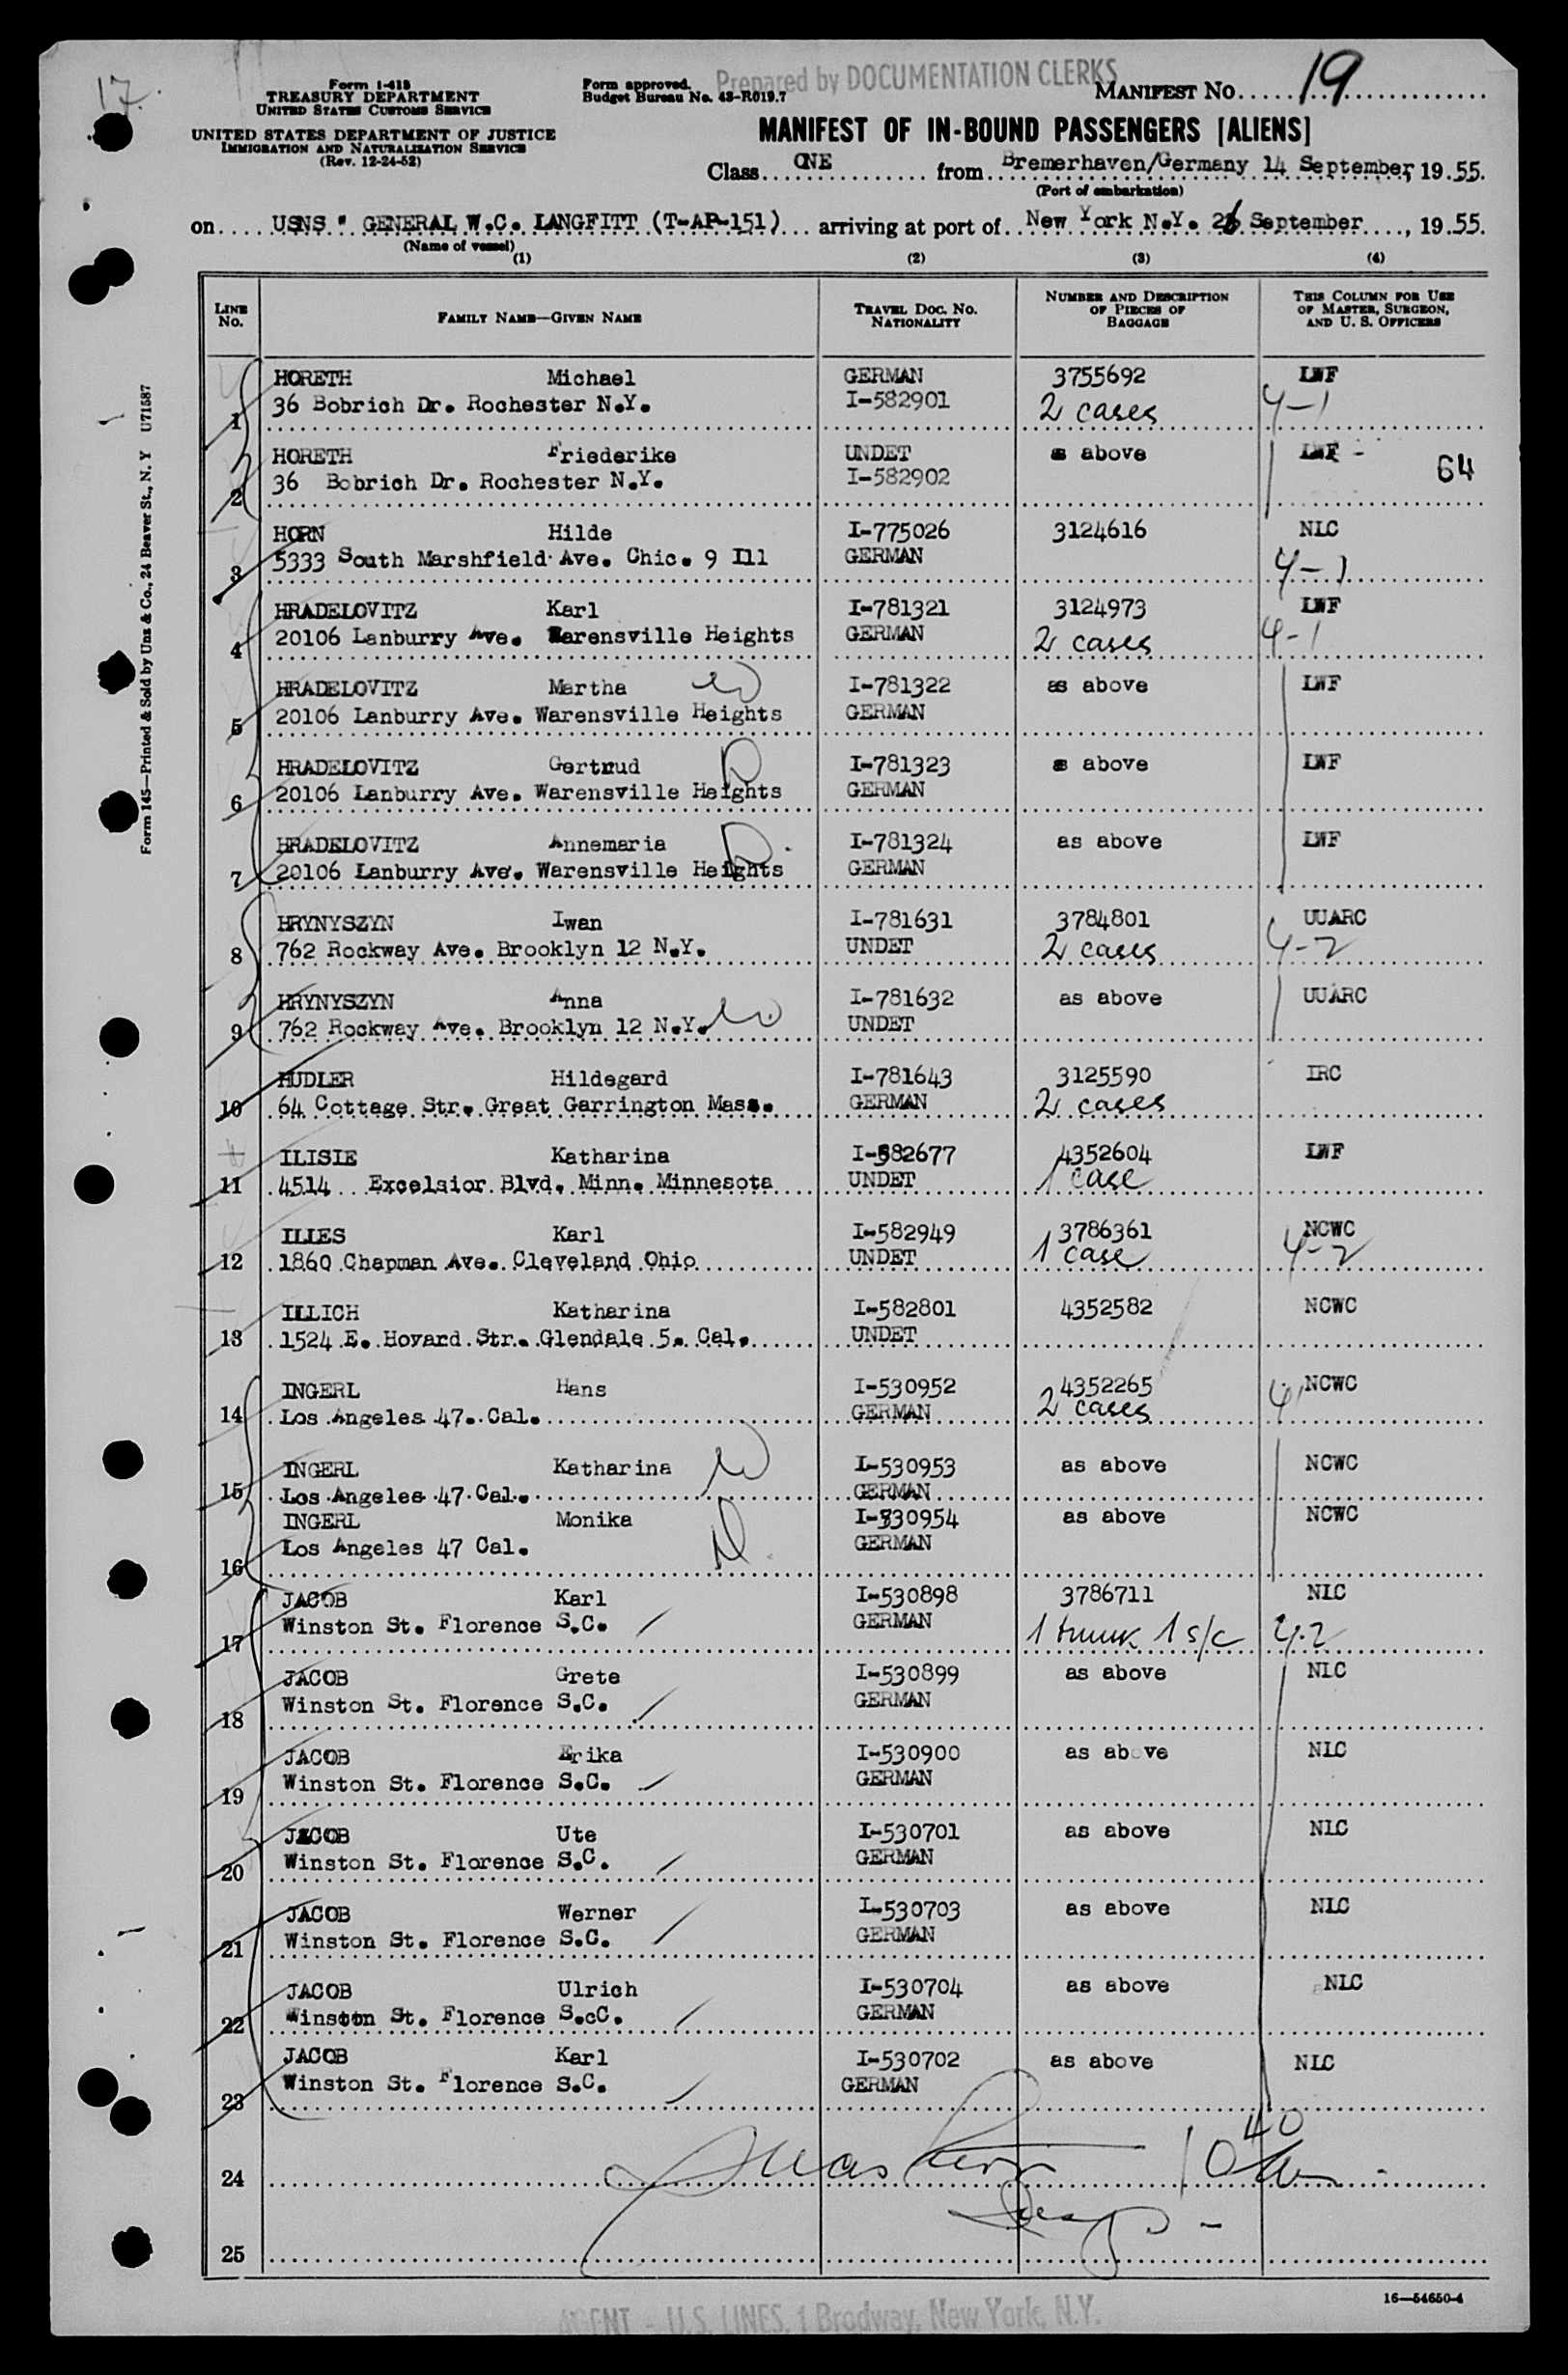 17.
Form I-418
TREASURY DEPARTMENT
UNITED STATES CUSTOMS SERVICE
UNITED STATES DEPARTMENT OF JUSTICE
IMMIGRATION AND NATURALIZATION SERVICE
(Rev. 12-24-52)
Form approved.
Budget Bureau No. 43-R019.7
Prepared by DOCUMENTATION CLERKS
MANIFEST NO. 19
MANIFEST OF IN-BOUND PASSENGERS [ALIENS]
Class ONE from Bremerhaven/Germany 14 September, 1955.
(Port of embarkation)
on USNS " GENERAL W.C. LANGFITT (T-AP-151) arriving at port of New York N.Y. 26 September, 1955.
(Name of vessel)
(1) (2) (3) (4)
LINE NO. FAMILY NAME—GIVEN NAME TRAVEL DOC. NO. NATIONALITY NUMBER AND DESCRIPTION OF PIECES OF BAGGAGE THIS COLUMN FOR USE OF MASTER, SURGEON, AND U. S. OFFICERS
HORETH Michael GERMAN 3755692 LWF
1 36 Bobrich Dr. Rochester N.Y. I-582901 2 cases 4-1
HORETH Friederike UNDET as above LWF -
2 36 Bobrich Dr. Rochester N.Y. I-582902 64
HORN Hilde I-775026 3124616 NLC
3 5333 South Marshfield Ave. Chic. 9 Ill GERMAN 4-1
HRADELOVITZ Karl I-781321 3124973 LWF
4 20106 Lanburry Ave. Warensville Heights GERMAN 2 cases 4-1
HRADELOVITZ Martha I-781322 as above LWF
5 20106 Lanburry Ave. Warensville Heights GERMAN
HRADELOVITZ Gertrud I-781323 as above LWF
6 20106 Lanburry Ave. Warensville Heights GERMAN
HRADELOVITZ Annemaria I-781324 as above LWF
7 20106 Lanburry Ave. Warensville Heights GERMAN
HRYNYSZYN Iwan I-781631 3784801 UUARC
8 762 Rockway Ave. Brooklyn 12 N.Y. UNDET 2 cases 4-2
HRYNYSZYN Anna I-781632 as above UUARC
9 762 Rockway Ave. Brooklyn 12 N.Y. UNDET
HUDLER Hildegard I-781643 3125590 IRC
10 64 Cottage Str. Great Garrington Mass. GERMAN 2 cases
ILISIE Katharina I-582677 4352604 LWF
11 4514 Excelsior Blvd. Minn. Minnesota UNDET 1 case
ILLES Karl I-582949 3786361 NCWC
12 1860 Chapman Ave. Cleveland Ohio UNDET 1 case 4-2
ILLICH Katharina I-582801 4352582 NCWC
13 1524 E. Hovard Str. Glendale 5. Cal. UNDET
INGERL Hans I-530952 4352265 NCWC
14 Los Angeles 47. Cal. GERMAN 2 cases
INGERL Katharina I-530953 as above NCWC
15 Los Angeles 47 Cal. GERMAN
INGERL Monika I-530954 as above NCWC
16 Los Angeles 47 Cal. GERMAN
JACOB Karl I-530898 3786711 NLC
17 Winston St. Florence S.C. GERMAN 1 trunk 1 s/c 4.2
JACOB Grete I-530899 as above NLC
18 Winston St. Florence S.C. GERMAN
JACOB Erika I-530900 as above NLC
19 Winston St. Florence S.C. GERMAN
JACOB Ute I-530701 as above NLC
20 Winston St. Florence S.C. GERMAN
JACOB Werner I-530703 as above NLC
21 Winston St. Florence S.C. GERMAN
JACOB Ulrich I-530704 as above NLC
22 Winston St. Florence S.cC. GERMAN
JACOB Karl I-530702 as above NLC
23 Winston St. Florence S.C. GERMAN
40
24
25
16—54650-4
AGENT - U.S. LINES, 1 Brodway, New York, N.Y.
Form 145—Printed & Sold by Unz & Co., 24 Beaver St., N. Y U71587